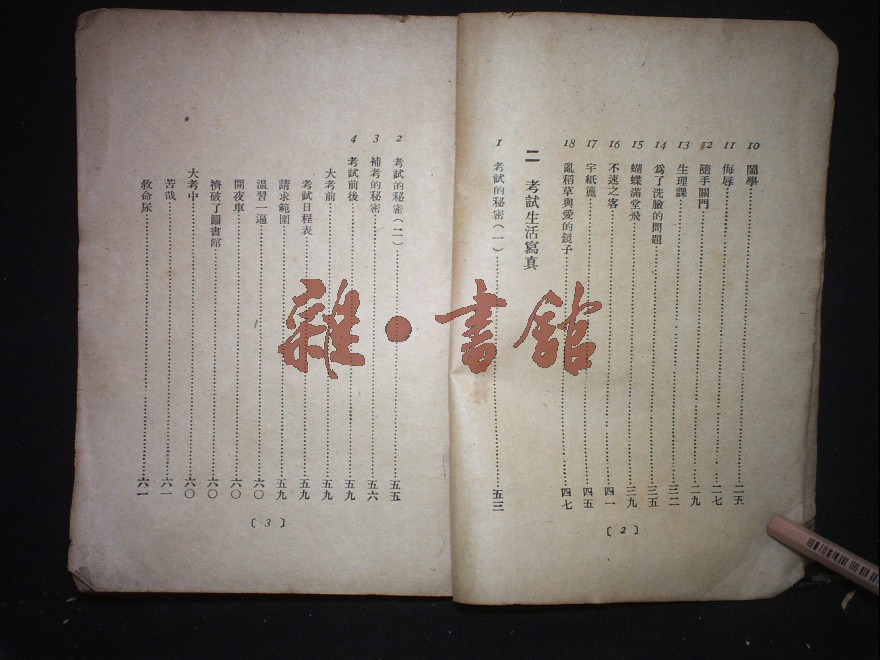 10 鬧學 二五
11 侮辱 二七
12 隨手關門 二九
13 生理課 三二
14 爲了洗臉的問題 三五
15 蝴蝶滿堂飛 三九
16 不速之客 四一
17 字紙簏 四五
18 亂稻草與愛的鏡子 四七
二 考試生活寫真
1 考試的秘密(一) 五三
〔2〕
2 考試的秘密(二) 五五
3 補考的秘密 五六
4 考試前後 五九
大考前 五九
考試日程表 五九
請求範圍 五九
溫習一遍 六〇
開夜車 六〇
擠破了圖書館 六〇
大考中 六〇
苦哉 六一
救命尿 六一
〔3〕
雜·書舘